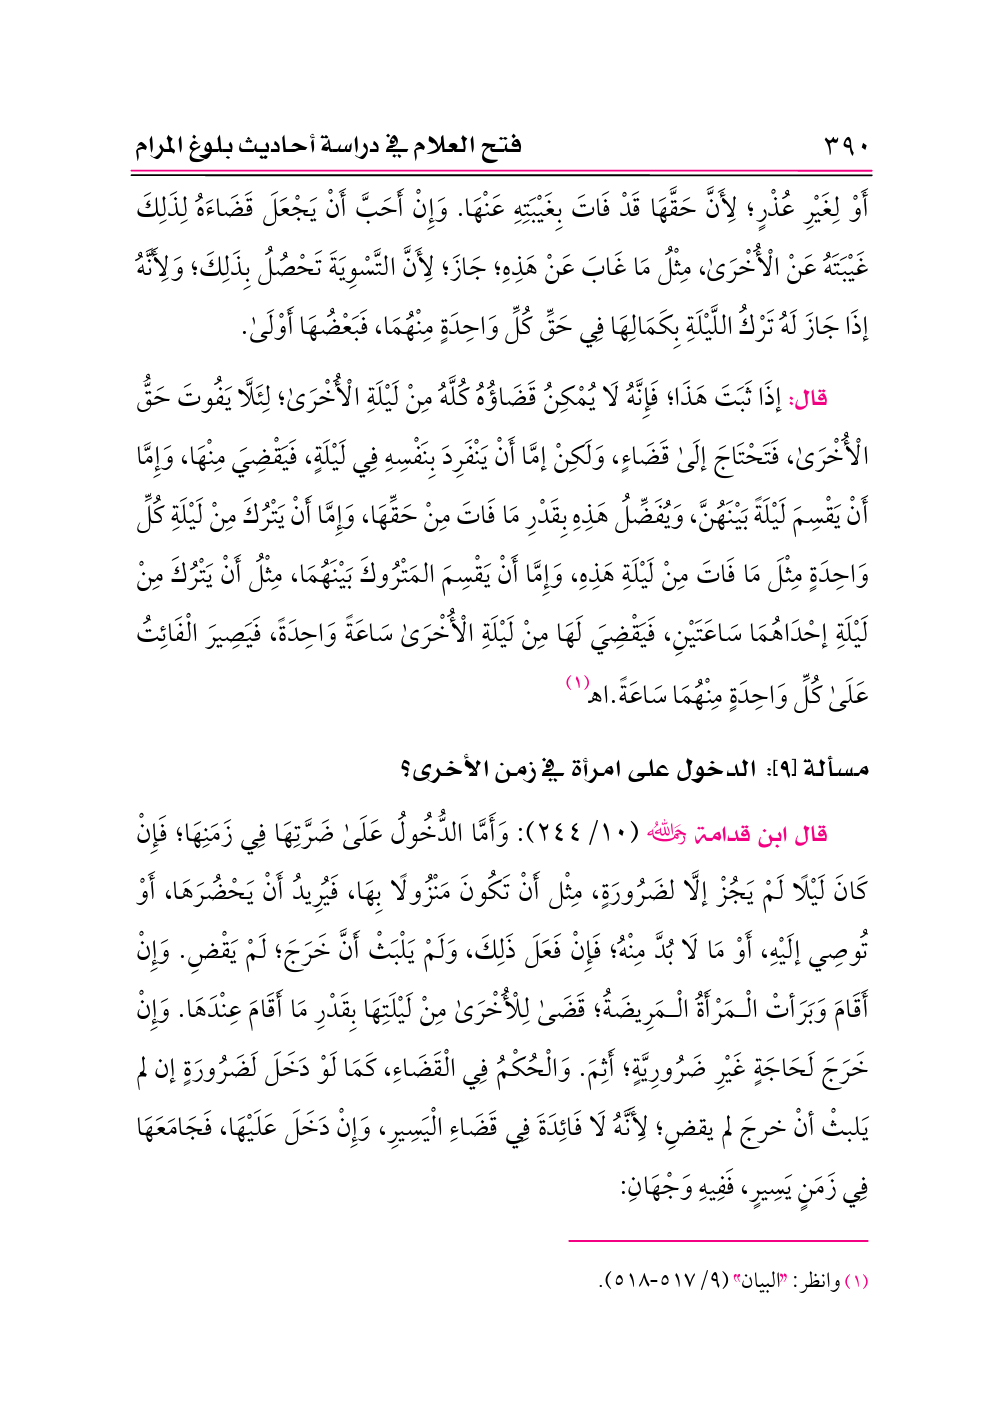 ٣٩٠ فتح العلام في دراسة أحاديث بلوغ المرام
أَوْ لِغَيْرِ عُذْرٍ؛ لِأَنَّ حَقَّهَا قَدْ فَاتَ بِغَيْبَتِهِ عَنْهَا. وَإِنْ أَحَبَّ أَنْ يَجْعَلَ قَضَاءَهُ لِذَلِكَ
غَيْبَتَهُ عَنْ الْأُخْرَىٰ، مِثْلُ مَا غَابَ عَنْ هَذِهِ؛ جَازَ؛ لِأَنَّ التَّسْوِيَةَ تَحْصُلُ بِذَلِكَ؛ وَلِأَنَّهُ
إذَا جَازَ لَهُ تَرْكُ اللَّيْلَةِ بِكَمَالِهَا فِي حَقِّ كُلِّ وَاحِدَةٍ مِنْهُمَا، فَبَعْضُهَا أَوْلَىٰ.
قال: إذَا ثَبَتَ هَذَا؛ فَإِنَّهُ لَا يُمْكِنُ قَضَاؤُهُ كُلَّهُ مِنْ لَيْلَةِ الْأُخْرَىٰ؛ لِئَلَّا يَفُوتَ حَقُّ
الْأُخْرَىٰ، فَتَحْتَاجَ إلَىٰ قَضَاءٍ، وَلَكِنْ إمَّا أَنْ يَنْفَرِدَ بِنَفْسِهِ فِي لَيْلَةٍ، فَيَقْضِيَ مِنْهَا، وَإِمَّا
أَنْ يَقْسِمَ لَيْلَةً بَيْنَهُنَّ، وَيُفَضِّلُ هَذِهِ بِقَدْرِ مَا فَاتَ مِنْ حَقِّهَا، وَإِمَّا أَنْ يَتْرُكَ مِنْ لَيْلَةِ كُلِّ
وَاحِدَةٍ مِثْلَ مَا فَاتَ مِنْ لَيْلَةِ هَذِهِ، وَإِمَّا أَنْ يَقْسِمَ المَتْرُوكَ بَيْنَهُمَا، مِثْلُ أَنْ يَتْرُكَ مِنْ
لَيْلَةِ إحْدَاهُمَا سَاعَتَيْنِ، فَيَقْضِيَ لَهَا مِنْ لَيْلَةِ الْأُخْرَىٰ سَاعَةً وَاحِدَةً، فَيَصِيرَ الْفَائِتُ
عَلَىٰ كُلِّ وَاحِدَةٍ مِنْهُمَا سَاعَةً.اﻫ(١)
مسألة [٩]: الدخول على امرأة في زمن الأخرى؟
قال ابن قدامة رحمه الله (١٠/ ٢٤٤): وَأَمَّا الدُّخُولُ عَلَىٰ ضَرَّتِهَا فِي زَمَنِهَا؛ فَإِنْ
كَانَ لَيْلًا لَمْ يَجُزْ إلَّا لضَرُورَةٍ، مِثْل أَنْ تَكُونَ مَنْزُولًا بِهَا، فَيُرِيدُ أَنْ يَحْضُرَهَا، أَوْ
تُوصِي إلَيْهِ، أَوْ مَا لَا بُدَّ مِنْهُ؛ فَإِنْ فَعَلَ ذَلِكَ، وَلَمْ يَلْبَثْ أَنَّ خَرَجَ؛ لَمْ يَقْضِ. وَإِنْ
أَقَامَ وَبَرَأتْ الْـمَرْأَةُ الْـمَرِيضَةُ؛ قَضَىٰ لِلْأُخْرَىٰ مِنْ لَيْلَتِهَا بِقَدْرِ مَا أَقَامَ عِنْدَهَا. وَإِنْ
خَرَجَ لَحَاجَةٍ غَيْرِ ضَرُورِيَّةٍ؛ أَثِمَ. وَالْحُكْمُ فِي الْقَضَاءِ، كَمَا لَوْ دَخَلَ لَضَرُورَةٍ إن لم
يَلبثْ أنْ خرجَ لم يقضِ؛ لِأَنَّهُ لَا فَائِدَةَ فِي قَضَاءِ الْيَسِيرِ، وَإِنْ دَخَلَ عَلَيْهَا، فَجَامَعَهَا
فِي زَمَنٍ يَسِيرٍ، فَفِيهِ وَجْهَانِ:
(١) وانظر: "البيان" (٩/ ٥١٧-٥١٨).